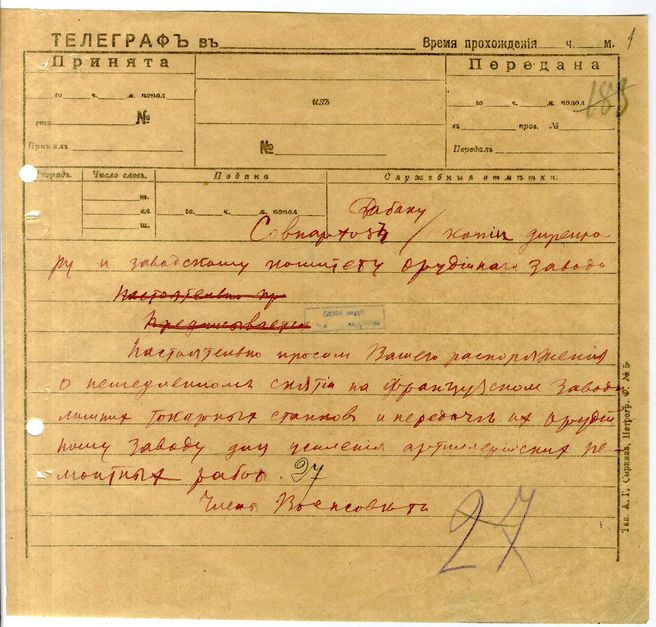 ТЕЛЕГРАФЪ въ
Время прохожденія ч. м.
1
Принята
го ч. м. попол
ста
№
Принялъ
изъ
№
Передана
183
го ч. м. попол
въ пров. №
Передалъ
Разрядъ.
Число словъ.
Подана
Служебныя отмѣтки:
го ч. м. попол
Бабаку
Совнархозъ / копии директо
ру и заводскому комитету Орудійнаго завода
Настоятельно пр
Предписывается
Настоятельно просим Вашего распоряжения
о немедленном снятіи на Французском Заводе
лишних токарных станков и передачѣ их Орудій
ному Заводу для усиления артиллерійских ре
монтных работ. 27
Члены Военсовета
27
Тип. А. Г. Сыркина, Петрогр. Ф. № 5